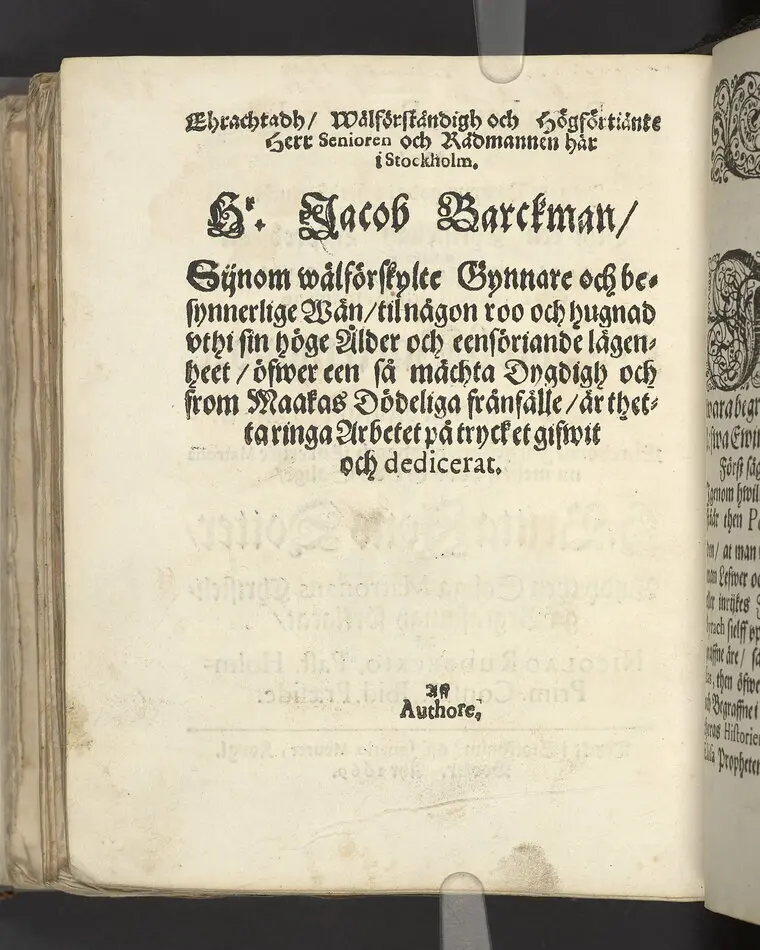 Ehrachtadh/ Wälförståndigh och Högförtiänte
Herr Senioren och Rådmannen här
i Stockholm.
Hr. Jacob Barckman/
Sijnom wälförskylte Gynnare och be-
synnerlige Wän/ til någon roo och hugnad
vthi sin höge Ålder och eensöriande lägen-
heet / öfwer een så mächta Dygdigh och
from Maakas Dödeliga frånfälle / är thet-
ta ringa Arbetet på trycket gifwit
och dedicerat.
Aff
Authore,
wara begr
Först säg
Igenom hwil
här then
/ at man
man Lefwer oc
eller inrijkes
/ then öfwe
och Begraffne i
Historier
Propheten